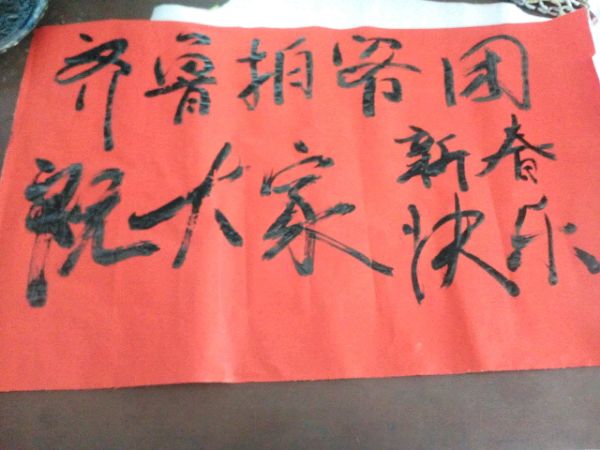 齐鲁拍客团
祝大家
新春
快乐